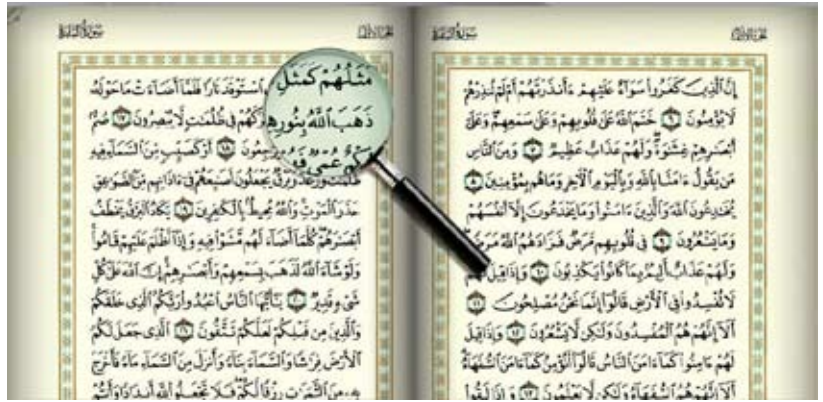 سُورَةُ البَقَرَةِ
الجُزْءُ الأَوَّلُ
إِنَّ ٱلَّذِينَ كَفَرُوا۟ سَوَآءٌ عَلَيْهِمْ ءَأَنذَرْتَهُمْ أَمْ لَمْ تُنذِرْهُمْ
لَا يُؤْمِنُونَ ٦ خَتَمَ ٱللَّهُ عَلَىٰ قُلُوبِهِمْ وَعَلَىٰ سَمْعِهِمْ وَعَلَىٰٓ
أَبْصَـٰرِهِمْ غِشَـٰوَةٌ وَلَهُمْ عَذَابٌ عَظِيمٌ ٧ وَمِنَ ٱلنَّاسِ
مَن يَقُولُ ءَامَنَّا بِٱللَّهِ وَبِٱلْيَوْمِ ٱلْـَٔاخِرِ وَمَا هُم بِمُؤْمِنِينَ ٨
يُخَـٰدِعُونَ ٱللَّهَ وَٱلَّذِينَ ءَامَنُوا۟ وَمَا يَخْدَعُونَ إِلَّآ أَنفُسَهُمْ
وَمَا يَشْعُرُونَ ٩ فِى قُلُوبِهِم مَّرَضٌ فَزَادَهُمُ ٱللَّهُ مَرَضًا
وَلَهُمْ عَذَابٌ أَلِيمٌۢ بِمَا كَانُوا۟ يَكْذِبُونَ ١٠ وَإِذَا قِيلَ لَهُمْ
لَا تُفْسِدُوا۟ فِى ٱلْأَرْضِ قَالُوٓا۟ إِنَّمَا نَحْنُ مُصْلِحُونَ ١١
أَلَآ إِنَّهُمْ هُمُ ٱلْمُفْسِدُونَ وَلَـٰكِن لَّا يَشْعُرُونَ ١٢ وَإِذَا قِيلَ
لَهُمْ ءَامِنُوا۟ كَمَآ ءَامَنَ ٱلنَّاسُ قَالُوٓا۟ أَنُؤْمِنُ كَمَآ ءَامَنَ ٱلسُّفَهَآءُ
أَلَآ إِنَّهُمْ هُمُ ٱلسُّفَهَآءُ وَلَـٰكِن لَّا يَعْلَمُونَ ١٣ وَإِذَا لَقُوا۟
سُورَةُ البَقَرَةِ
الجُزْءُ الأَوَّلُ
مَثَلُهُمْ كَمَثَلِ ٱسْتَوْقَدَ نَارًا فَلَمَّآ أَضَآءَتْ مَا حَوْلَهُۥ
ذَهَبَ ٱللَّهُ بِنُورِهِمْ وَتَرَكَهُمْ فِى ظُلُمَـٰتٍ لَّا يُبْصِرُونَ ١٧ صُمٌّۢ
بُكْمٌ عُمْىٌ فَهُمْ يَرْجِعُونَ ١٨ أَوْ كَصَيِّبٍ مِّنَ ٱلسَّمَآءِ فِيهِ
ظُلُمَـٰتٌ وَرَعْدٌ وَبَرْقٌ يَجْعَلُونَ أَصَـٰبِعَهُمْ فِىٓ ءَاذَانِهِم مِّنَ ٱلصَّوَٰعِقِ
حَذَرَ ٱلْمَوْتِ وَٱللَّهُ مُحِيطٌۢ بِٱلْكَـٰفِرِينَ ١٩ يَكَادُ ٱلْبَرْقُ يَخْطَفُ
أَبْصَـٰرَهُمْ كُلَّمَآ أَضَآءَ لَهُم مَّشَوْا۟ فِيهِ وَإِذَآ أَظْلَمَ عَلَيْهِمْ قَامُوا۟
وَلَوْ شَآءَ ٱللَّهُ لَذَهَبَ بِسَمْعِهِمْ وَأَبْصَـٰرِهِمْ إِنَّ ٱللَّهَ عَلَىٰ كُلِّ
شَىْءٍ قَدِيرٌ ٢٠ يَـٰٓأَيُّهَا ٱلنَّاسُ ٱعْبُدُوا۟ رَبَّكُمُ ٱلَّذِى خَلَقَكُمْ
وَٱلَّذِينَ مِن قَبْلِكُمْ لَعَلَّكُمْ تَتَّقُونَ ٢١ ٱلَّذِى جَعَلَ لَكُمُ
ٱلْأَرْضَ فِرَٰشًا وَٱلسَّمَآءَ بِنَآءً وَأَنزَلَ مِنَ ٱلسَّمَآءِ مَآءً فَأَخْرَجَ
بِهِۦ مِنَ ٱلثَّمَرَٰتِ رِزْقًا لَّكُمْ فَلَا تَجْعَلُوا۟ لِلَّهِ أَندَادًا وَأَنتُمْ